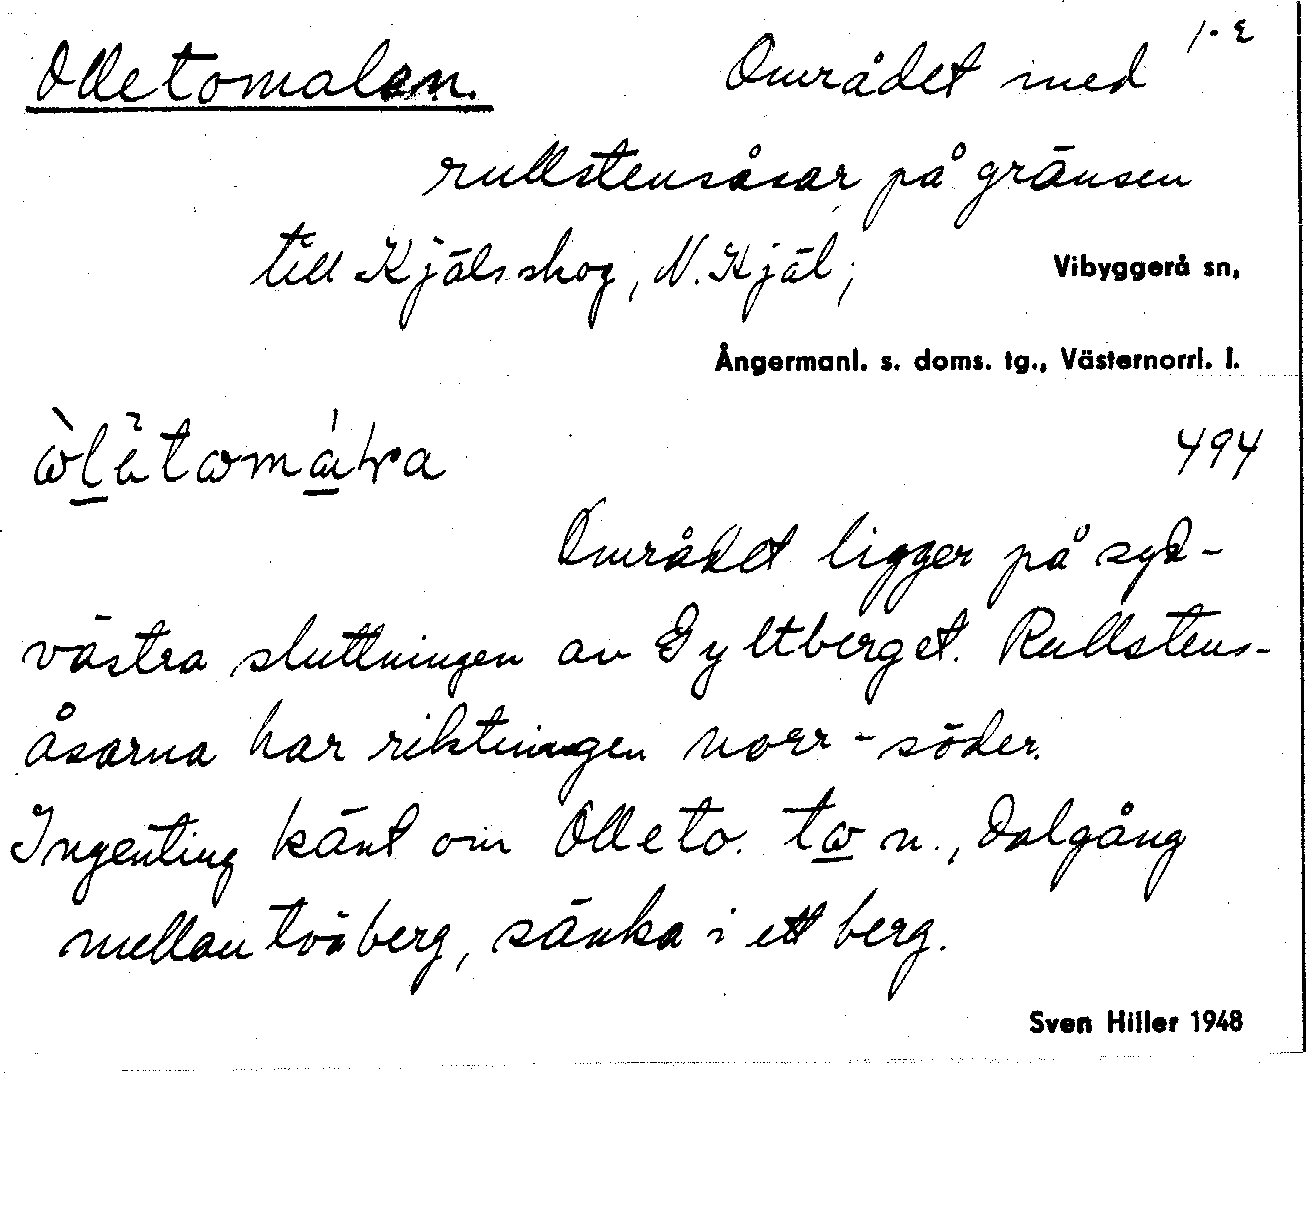 Olletomalen. Området med
rullstensåsar på gränsen
till Kjälsskog, N. Kjäl; Vibyggerå sn,
Ångermanl. s. doms. tg., Västernorrl. l.
494
Området ligger på syd-
västra sluttningen av Gyltberget. Rullstens-
åsarna har riktningen norr - söder.
Ingenting känt om Olleto. tω n., dalgång
mellan två berg, sänka i ett berg.
Sven Hiller 1948